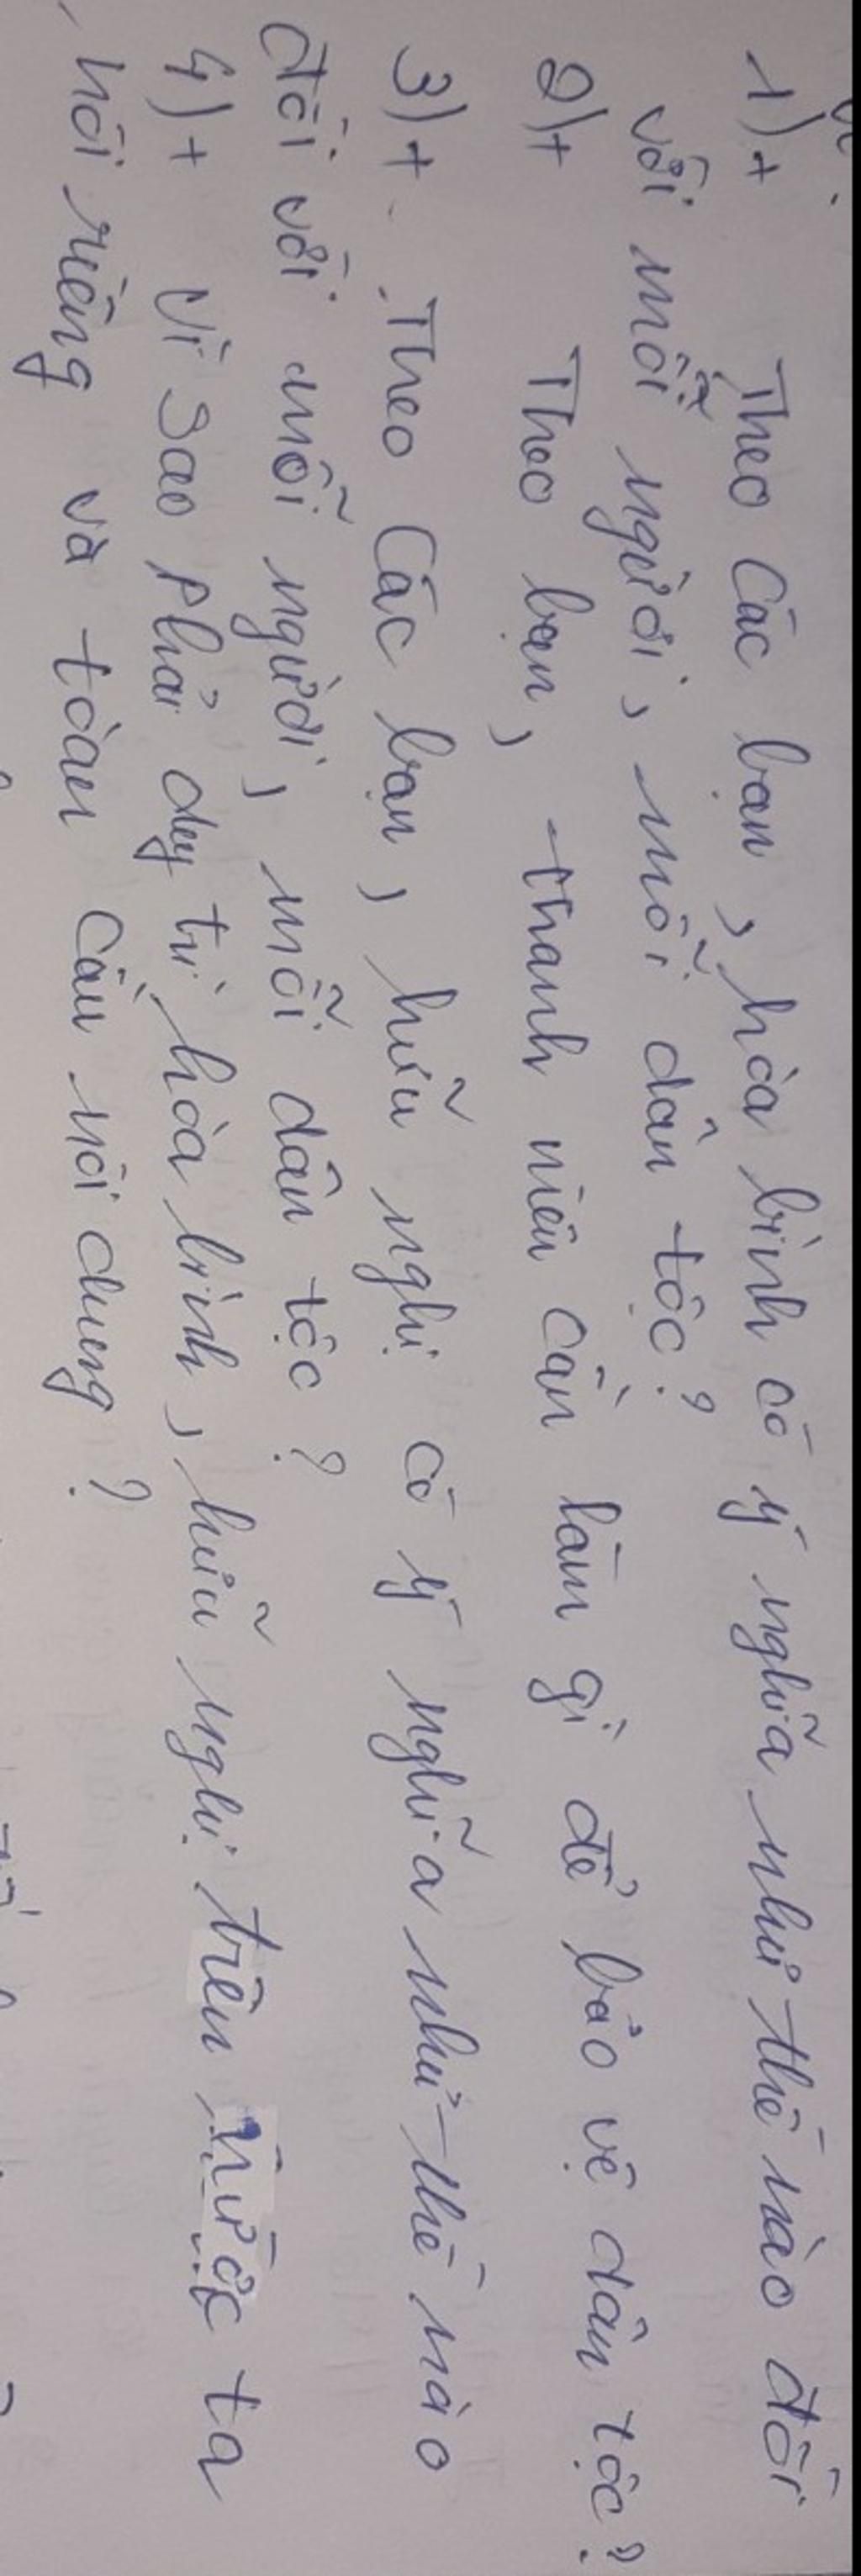 1)+ Theo các bạn, hòa bình có ý nghĩa như thế nào đối
với mỗi người, mỗi dân tộc?
2)+ Theo bạn, thanh niên cần làm gì để bảo vệ dân tộc?
3)+ Theo các bạn, hữu nghị có ý nghĩa như thế nào
đối với mỗi người, mỗi dân tộc?
4)+ Vì sao phải duy trì hòa bình, hữu nghị trên nước ta
nói riêng và toàn cầu nói chung?